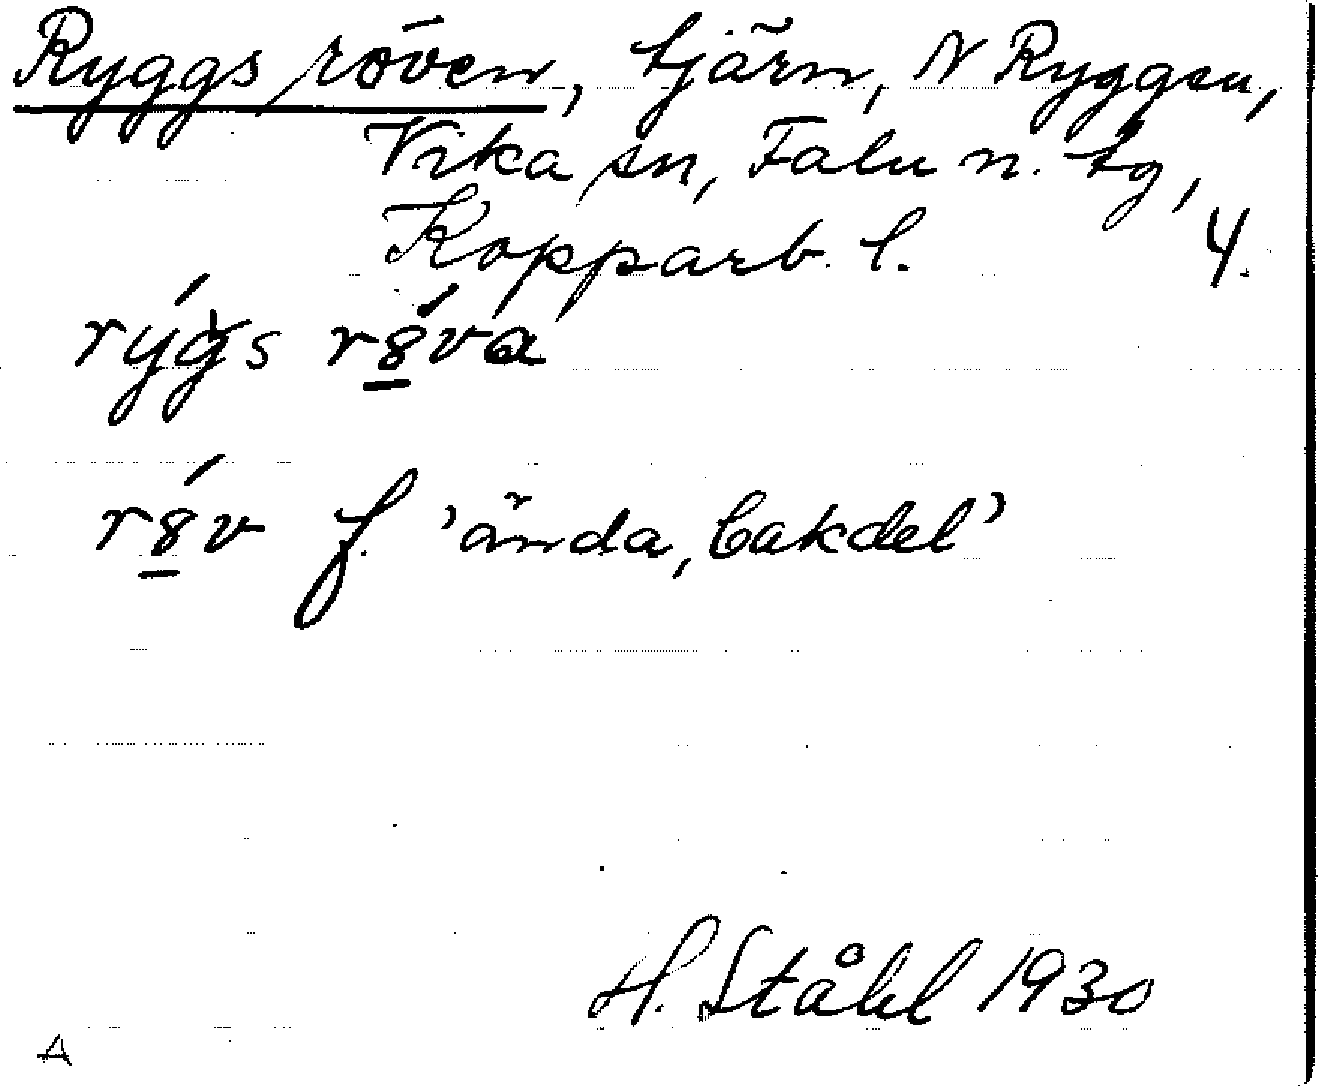 Ryggsröven, tjärn, N Ryggen,
Vika sn, Falu n. tg,
Kopparb. l. 4.
rýgs rȣ́va
rȣ́v f. 'ända, bakdel'
H. Ståhl 1930
A